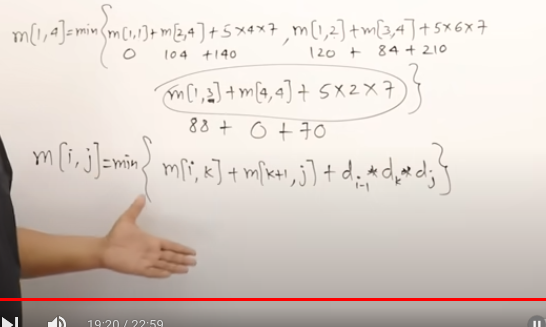 m[1,4]=min{m[1,1]+m[2,4]+5×4×7, m[1,2]+m[3,4]+5×6×7
0 104 +140 120 + 84 + 210
m[1,3]+m[4,4]+5×2×7}
88 + 0 + 70
m[i,j]=min{m[i,k]+m[k+1,j]+d_{i-1}*d_k*d_j}
19:20 / 22:59